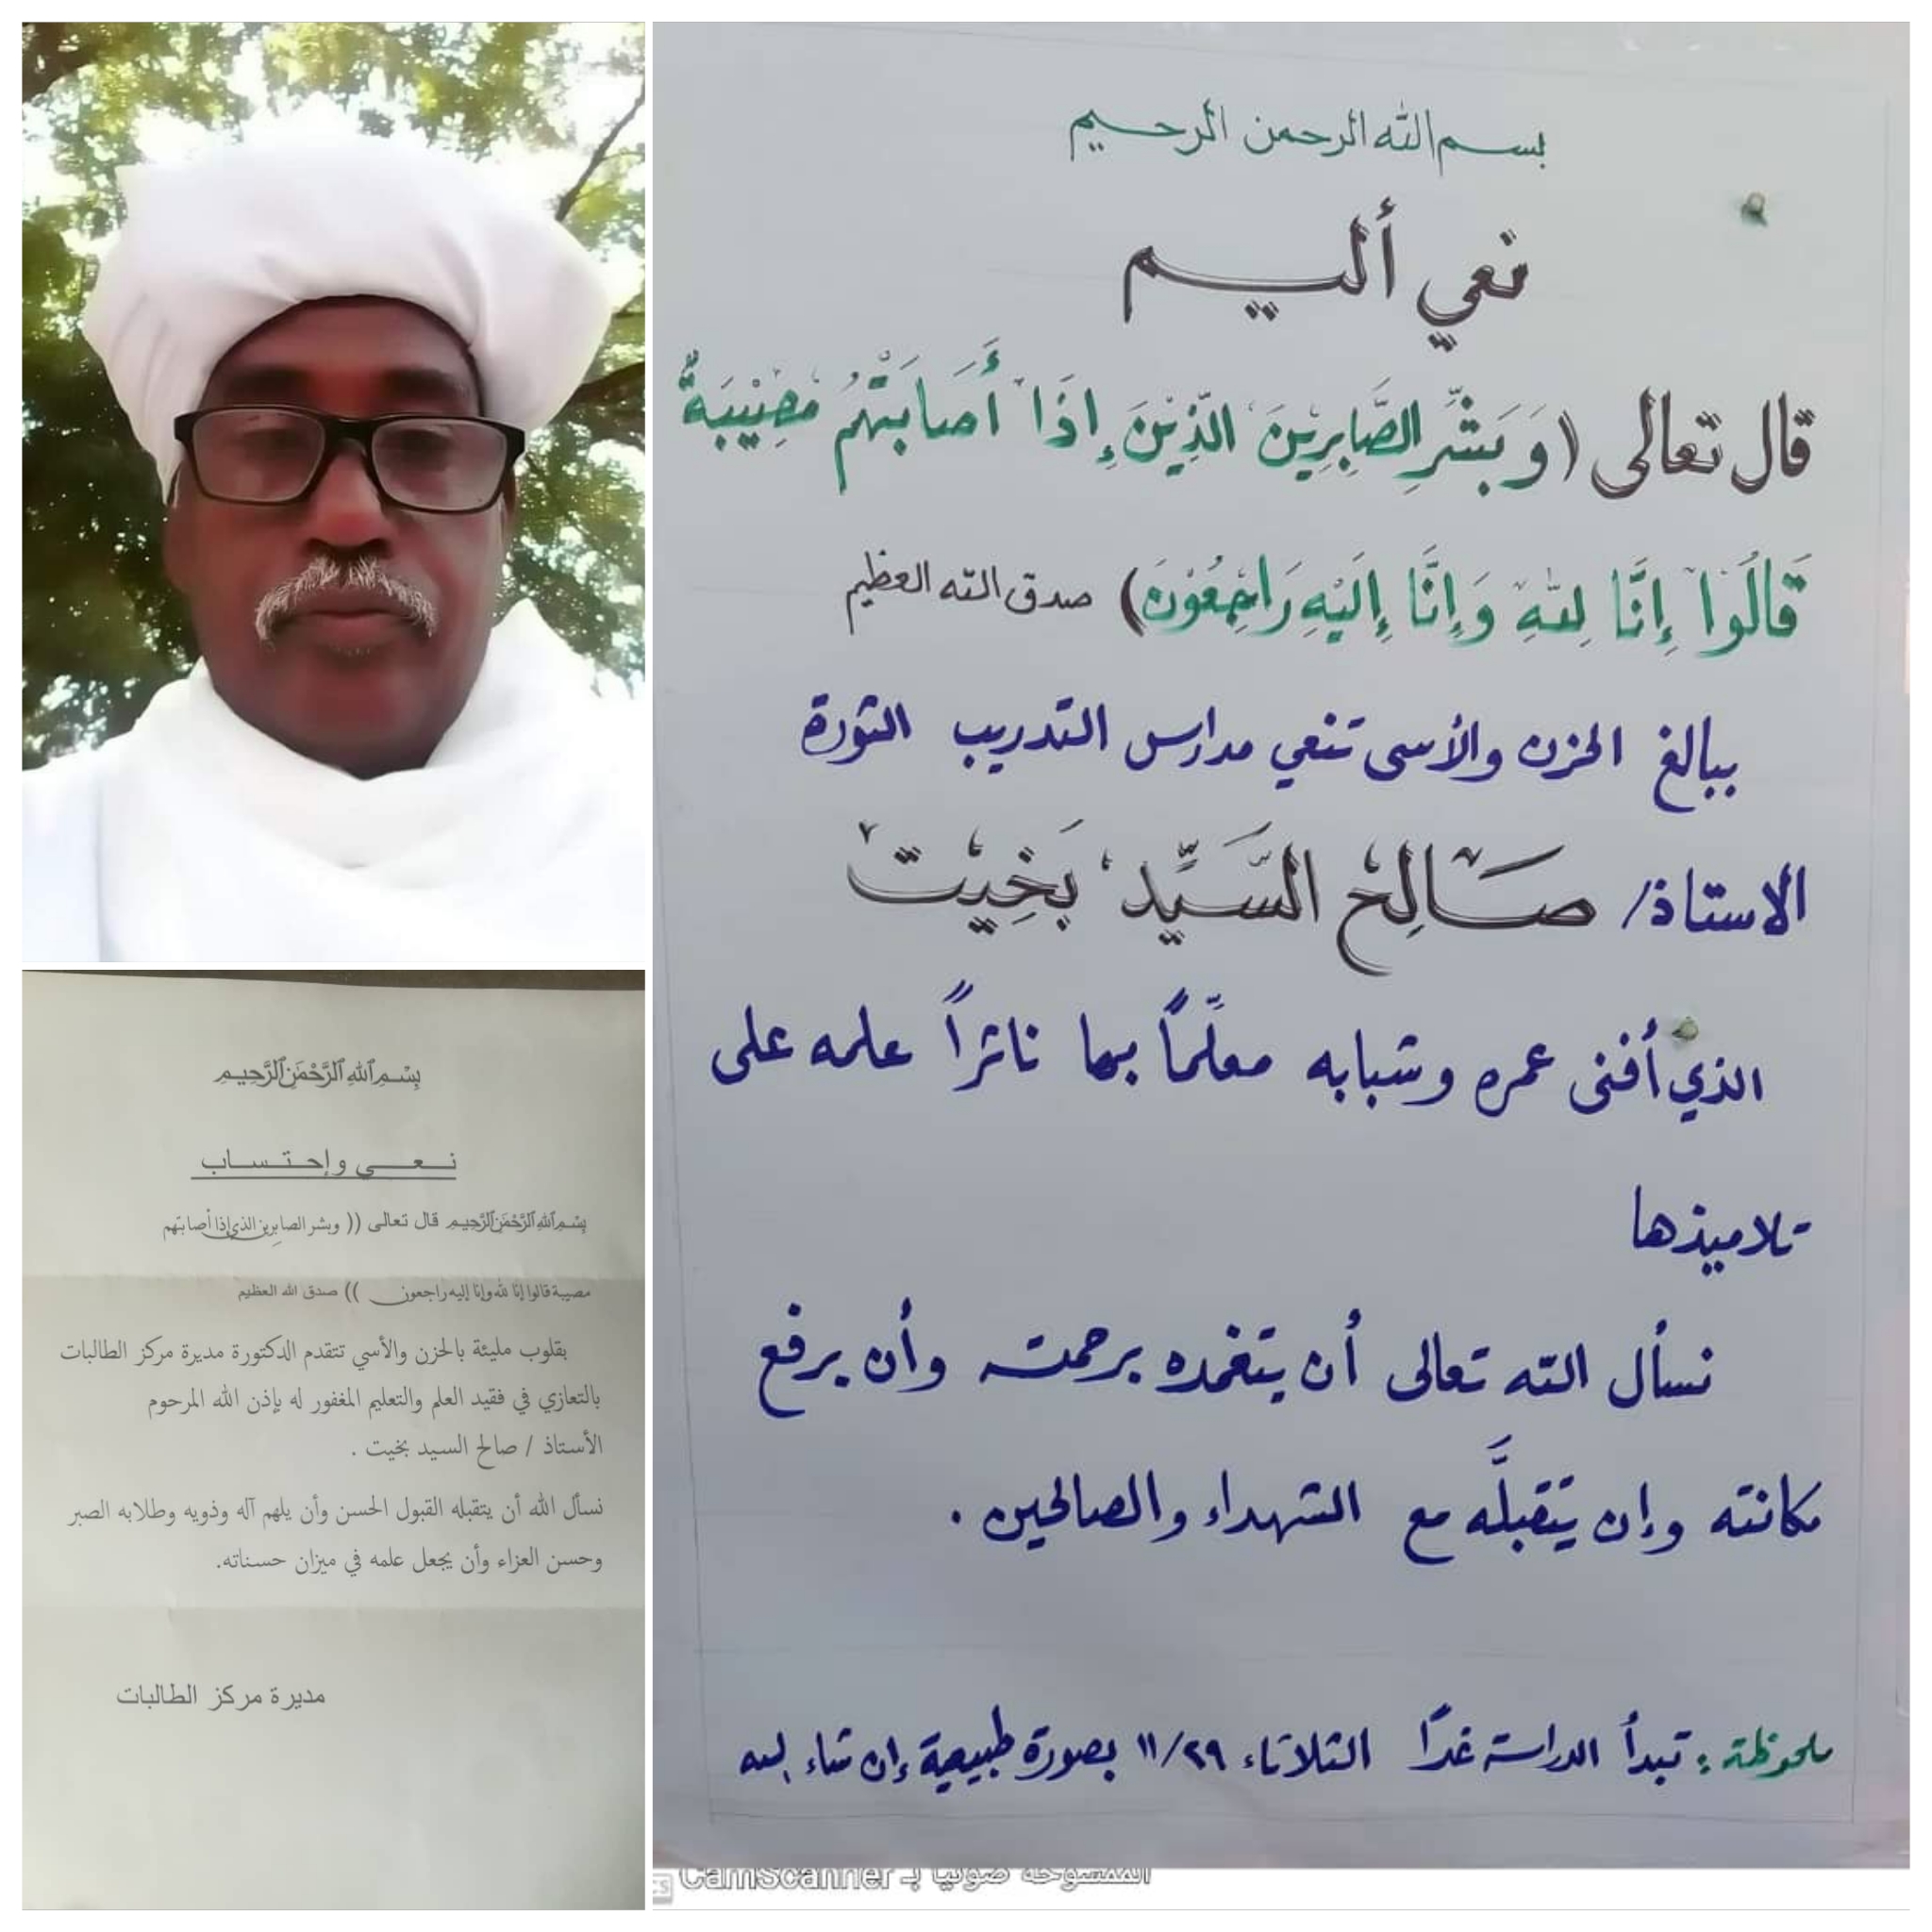 بسم الله الرحمن الرحيم
نعي أليم
قال تعالى (وَبَشِّرِ الصَّابِرِيْنَ الَّذِيْنَ إِذَا أَصَابَتْهُمْ مُصِيْبَةٌ
قَالُوْا إِنَّا لِلّٰهِ وَإِنَّا إِلَيْهِ رَاجِعُوْنَ) صدق الله العظيم
ببالغ الحزن والأسى تنعي مدارس التدريب الثورة
الاستاذ/ صَالِحْ السَّيِّدْ بَخِيْتْ
الذي أفنى عمره وشبابه معلّماً بها ناثراً علمه على
تلاميذها
نسأل الله تعالى أن يتغمده برحمته وأن يرفع
مكانته وإن يتقبلَّه مع الشهداء والصالحين .
ملحوظة : تبدأ الدراسة غداً الثلاثاء ٢٩/١١ بصورة طبيعية إن شاء الله
الممسوحة ضوئيا بـ CamScanner
CS
بِسْمِ ٱللَّهِ ٱلرَّحْمَٰنِ ٱلرَّحِيمِ
نعي وإحتساب
بِسْمِ ٱللَّهِ ٱلرَّحْمَٰنِ ٱلرَّحِيمِ قال تعالى (( وبشر الصابرين الذي إذا أصابتهم
مصيبة قالوا إنا لله وإنا إليه راجعون )) صدق الله العظيم
بقلوب مليئة بالحزن والأسي تتقدم الدكتورة مديرة مركز الطالبات
بالتعازي في فقيد العلم والتعليم المغفور له بإذن الله المرحوم
الأستاذ / صالح السيد بخيت .
نسأل الله أن يتقبله القبول الحسن وأن يلهم آله وذويه وطلابه الصبر
وحسن العزاء وأن يجعل علمه في ميزان حسناته.
مديرة مركز الطالبات